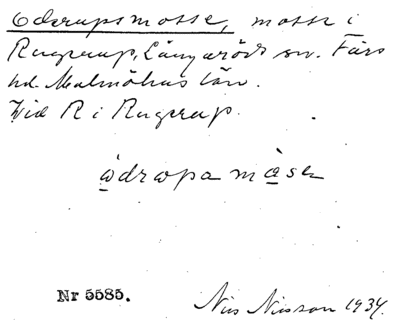 Oderupsmosse, mosse i
Rugerup, Långaröds sn. Färs
hd. Malmöhus län.
Vid R i Rugerup.
ωdrωpa mαsα
Nr 5585.
Nils Nilsson 1934.